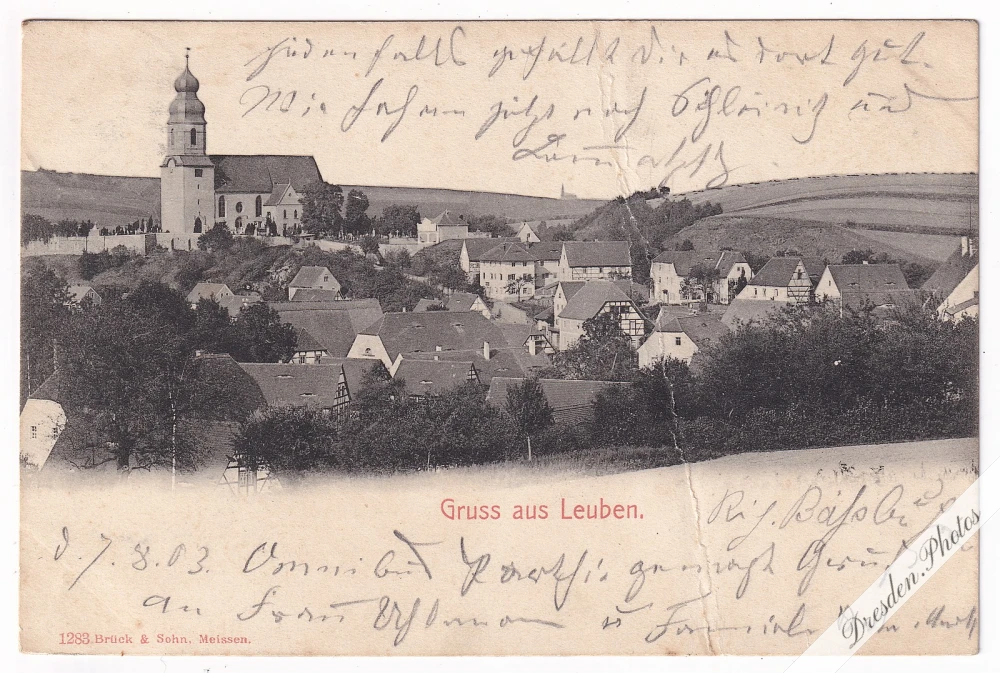 jedenfalls gefällt Dir es dort gut.
Wir fahren jetzt nach Schleinitz und
Lommatzsch
Gruss aus Leuben.
d. 7.8.03. Omnibus Parthie gemacht Gruß
an Frau Uhlmann u Familie
1283. Brück & Sohn, Meissen.
Dresden.Photos